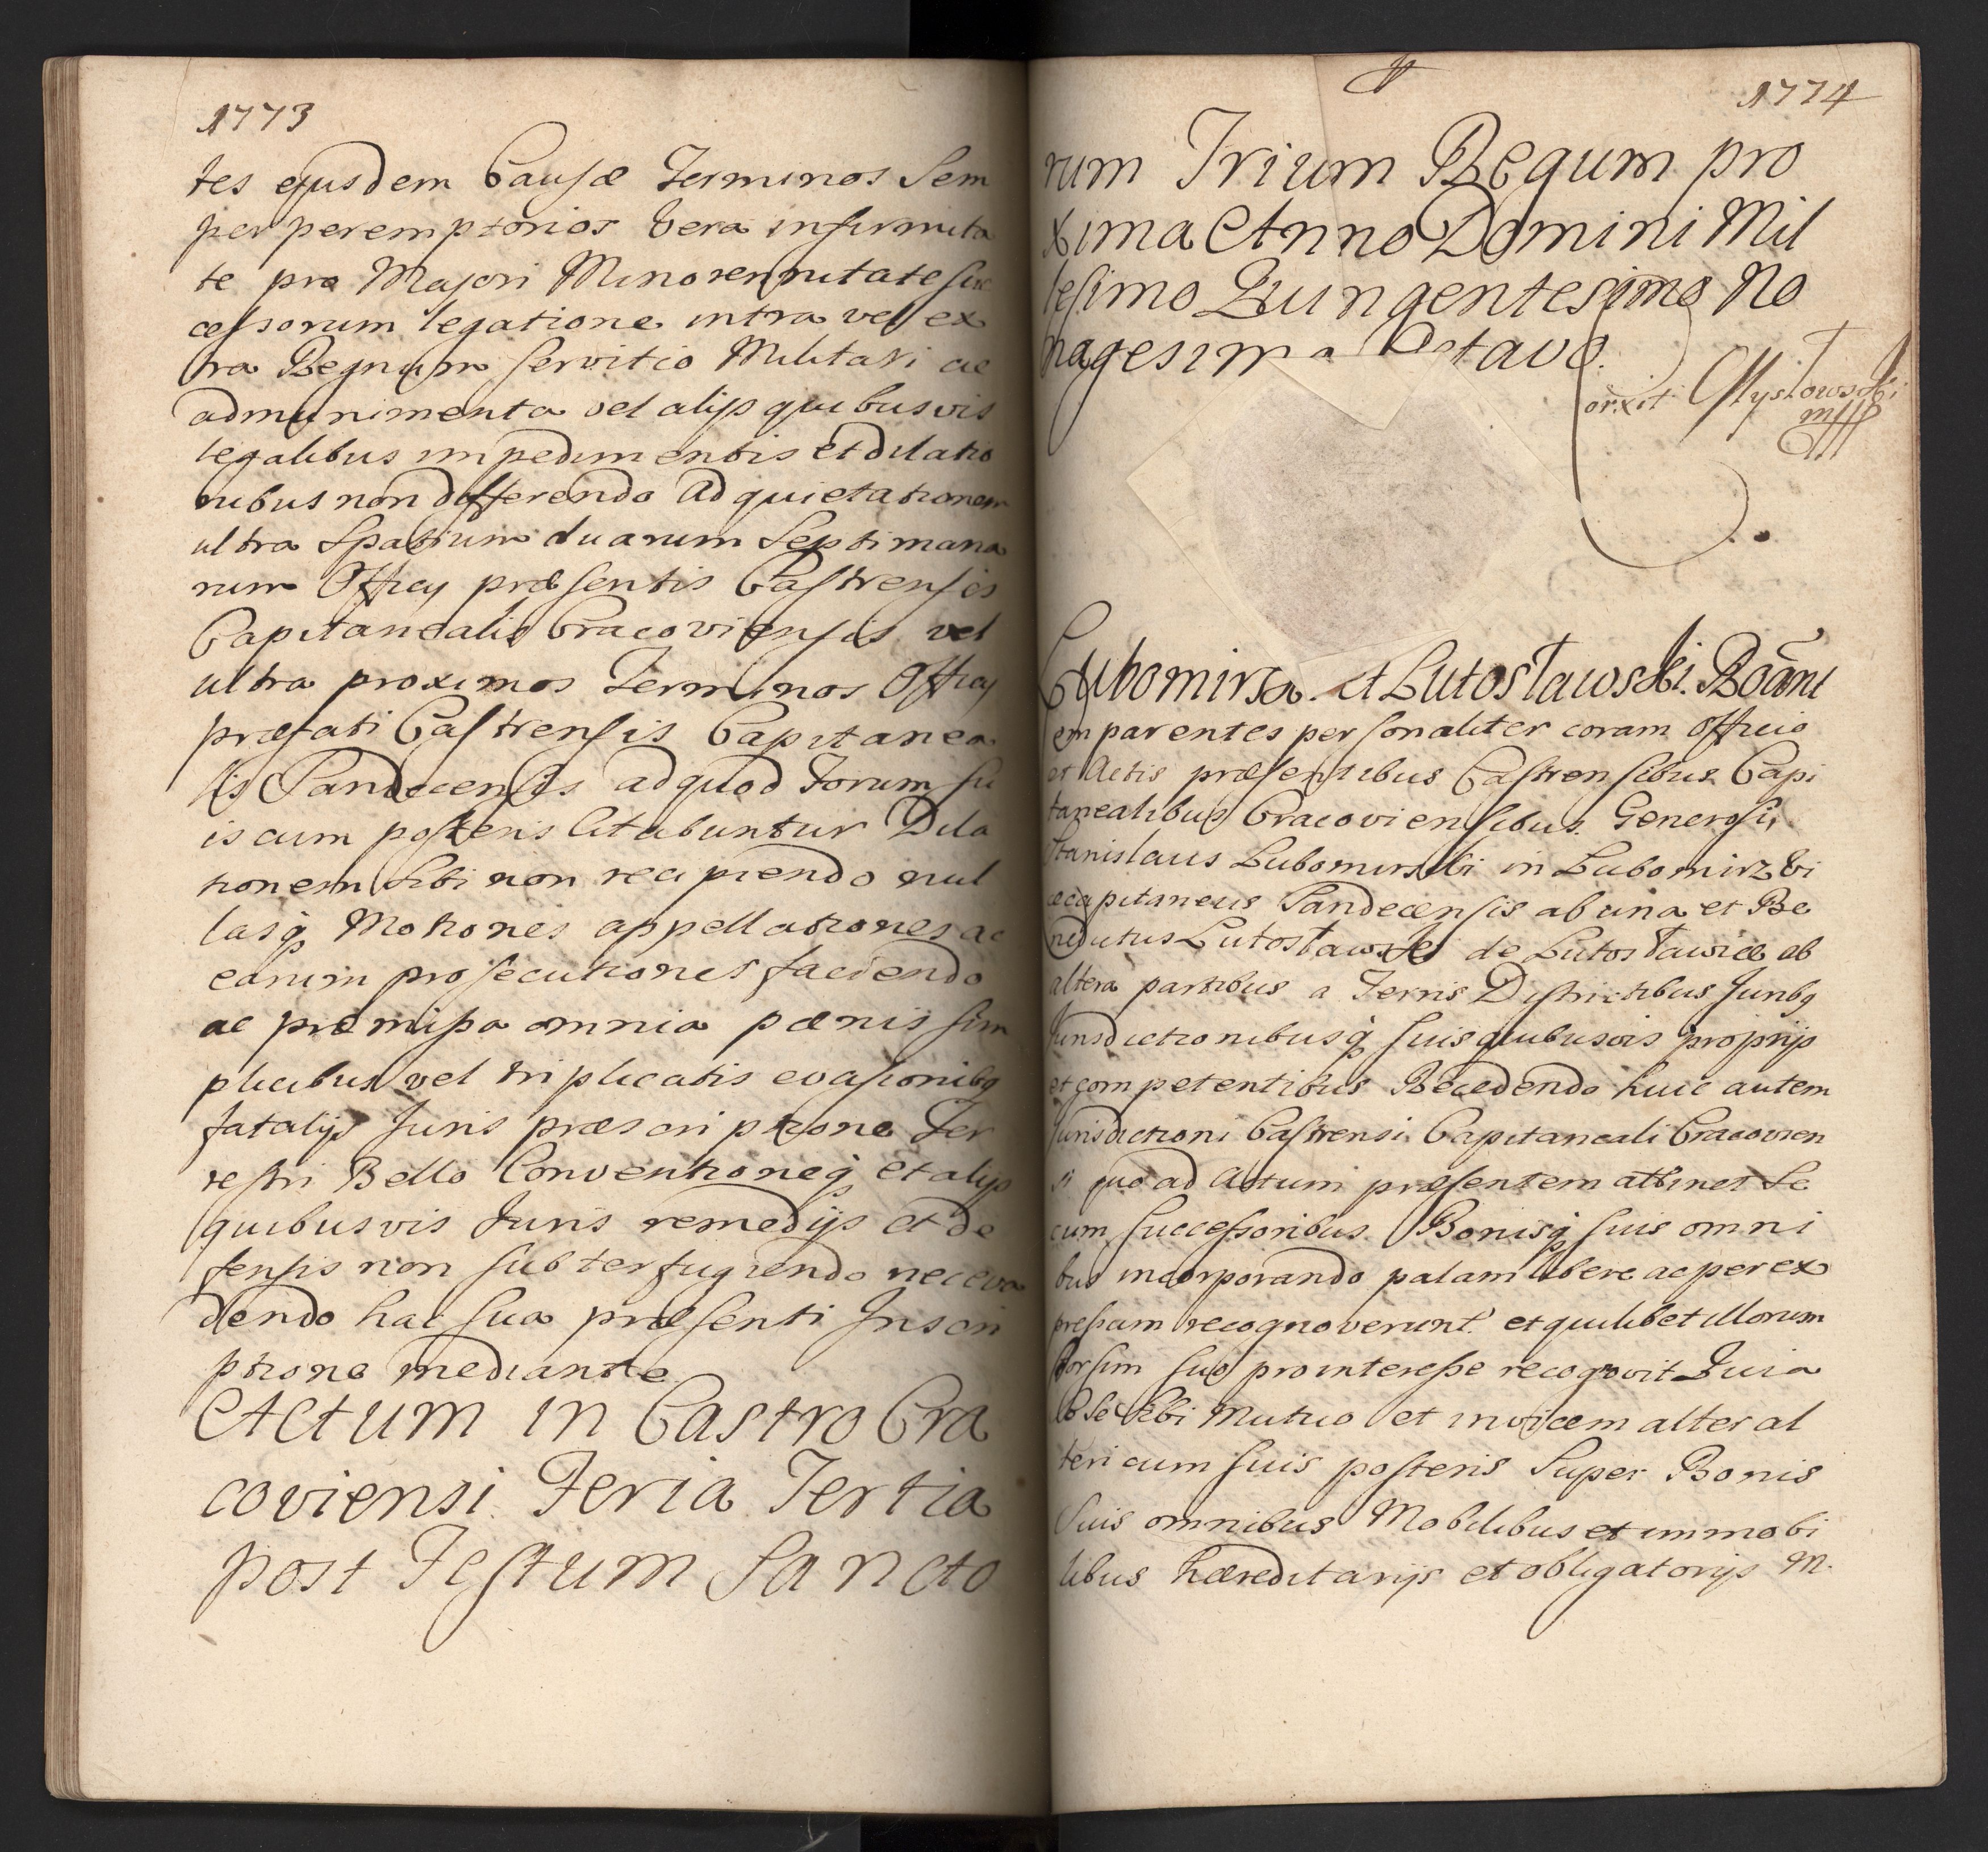 1773
tes ejusdem Causæ Terminos Sem
per peremptorios vera infirmita
te pro Majori Minorennitate suc
cessorum legatione intra vel ex
tra Regnum servitio Militari ac
admunimenta vel alijs quibusvis
legalibus impedimentis et dilatio
nibus non differendo ad quietationem
ultra Spatium duarum Septimana
rum Officij præsentis Castrensis
Capitanealis Cracoviensis vel
ultra proximos Terminos Officij
præfati Castrensis Capitanea
lis Sandecensis ad quod Forum su
is cum posteris Citabuntur Dila
tionem sibi non recipiendo nul
lasq Motiones appellationes ac
earum prosecutiones faciendo
ac præmissa omnia pænis sim
plicibus vel triplicatis evasionibq
fatalijs Juris præscriptione Ter
restri Bello Conventioneq et alijs
quibusvis Juris remedijs et de
fensis non subterfugiendo nec eva
dendo hac sua præsenti Inscri
ptione mediante
Actum in Castro Cra
coviensi Feria Tertia
post Festum Sancto
1774
rum Trium Regum pro
xima Anno Domini Mil
lesimo Quingentesimo No
nagesimo Octavo.
Lubomirski et Lutosławski Roãnt
Comparentes personaliter coram Officio
et Actis præsentibus Castrensibus Capi
tanealibus Cracoviensibus Generosi,
Stanislaus Lubomirski in Lubomirz Vi
cecapitaneus Sandecensis ab una et Be
nedictus Lutosławski de Lutosławice ab
altera partibus a Terris Districtibus Juribq
Jurisdictionibusq suis quibusvis proprijs
et competentibus Recedendo huic autem
Jurisdictioni Castrensi Capitaneali Cracovien
si quo ad Actum præsentem attinet Se
cum successoribus Bonisq suis omni
bus incorporando palam libere ac per ex
pressum recognoverunt et quilibet illorum
sorsim suo pro interesse recognovit Quia
ob se sibi Mutuo et invicem alter al
teri cum suis posteris Super Bonis
Suis omnibus Mobilibus et immobi
libus hæreditarijs et obligatorijs M.